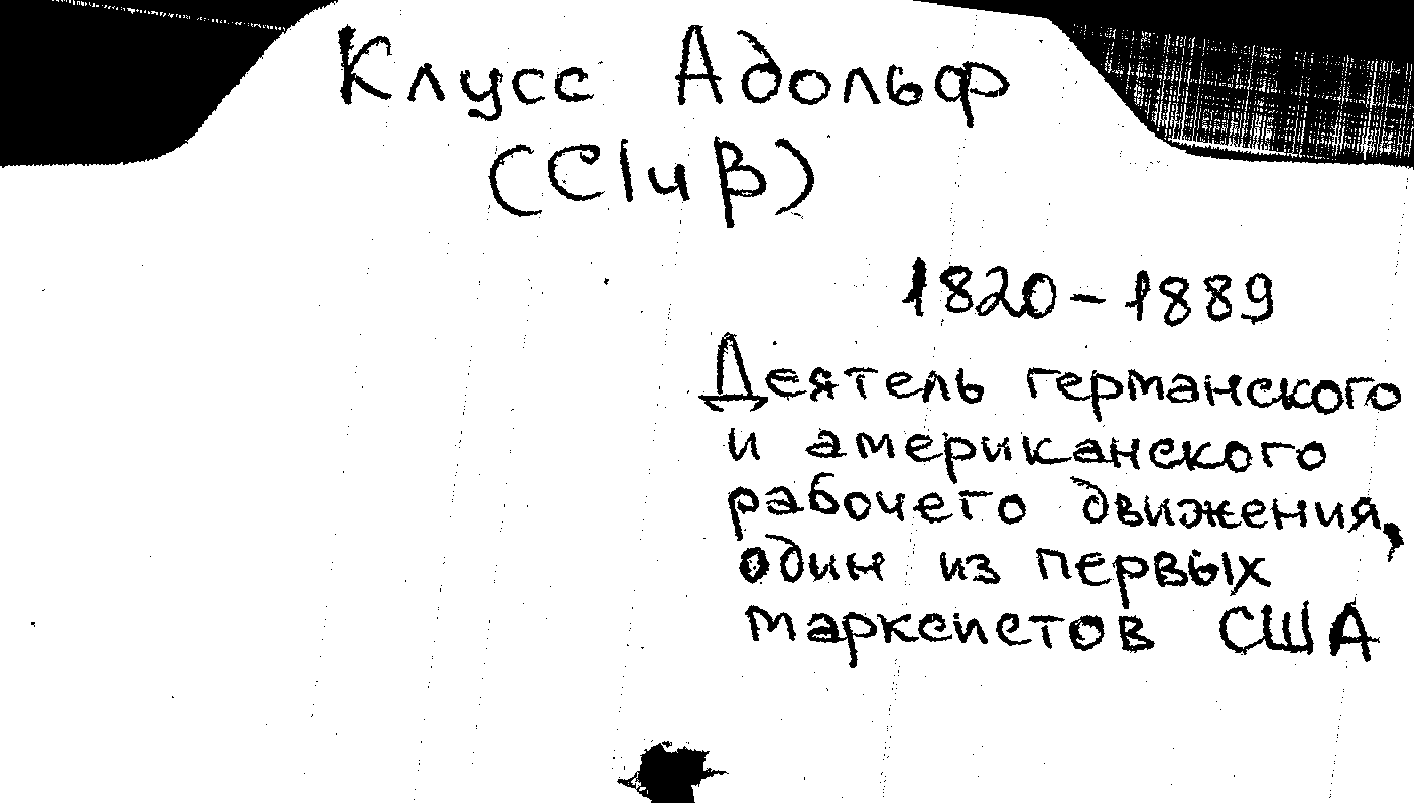 Клусс Адольф
(Cluß)
1820-1889
Деятель германского
и американского
рабочего движения,
один из первых
марксистов США